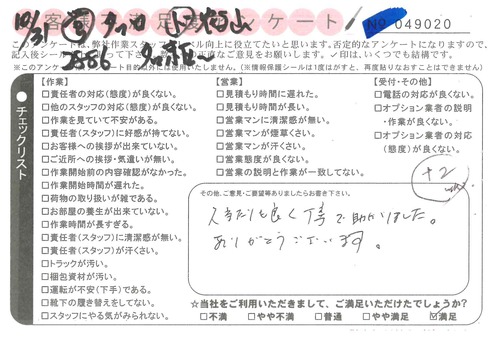 お客様満足度アンケート
No 049020
10/31
このアンケートは、弊社作業スタッフのレベル向上に役立てたいと思います。否定的なアンケートになりますので、
※このアンケート目的以外には使用いたしません。(※情報保護シールは1度はがすと、再度貼りなおすことはできません)
チェックリスト
【作業】
□責任者の対応(態度)が良くない。
□他のスタッフの対応(態度)が良くない。
□作業を見ていて不安がある。
□責任者(スタッフ)に好感が持てない。
□お客様への挨拶が出来ていない。
□ご近所への挨拶・気遣いが無い。
□作業開始前の内容確認がなかった。
□作業開始時間が遅れた。
□荷物の取り扱いが雑である。
□お部屋の養生が出来ていない。
□作業時間が長すぎる。
□責任者(スタッフ)に清潔感が無い。
□責任者(スタッフ)が汗くさい。
□トラックが汚い。
□梱包資材が汚い。
□運転が不安(下手)である。
□靴下の履き替えをしてない。
□スタッフにやる気がみられない。
【営業】
□見積もり時間に遅れた。
□見積もり時間が長い。
□営業マンに清潔感が無い。
□営業マンが煙草くさい。
□営業マンが汗くさい。
□営業態度が良くない。
□営業の説明と作業が一致してない。
【受付・その他】
□電話の対応が良くない。
□オプション業者の説明
・作業が良くない。
□オプション業者の対応
(態度)が良くない。
+2
その他、ご意見・ご要望等ありましたらお書き下さい。
良く丁寧で助かりました。
ありがとうございます。
☆当社をご利用いただきまして、ご満足いただけたでしょうか?
□不満 □やや不満 □普通 □やや満足 ☑満足